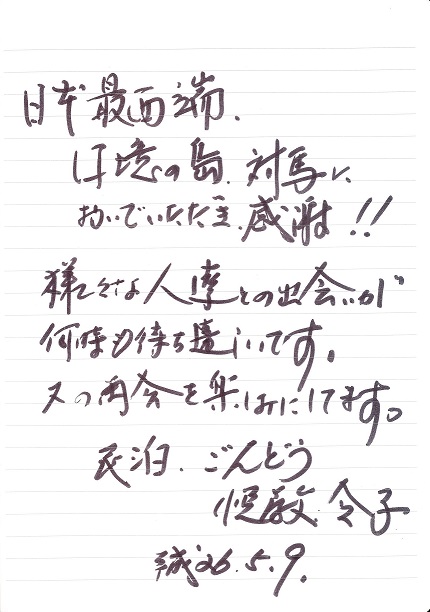 日本最西端、
国境の島、対馬に
おいでいただき、感謝!!
様々な人達との出会いが
何時も待ち遠しいです。
又の再会を楽しみにしてます。
民泊、ごんどう
敏、令子
平成26.5.9.